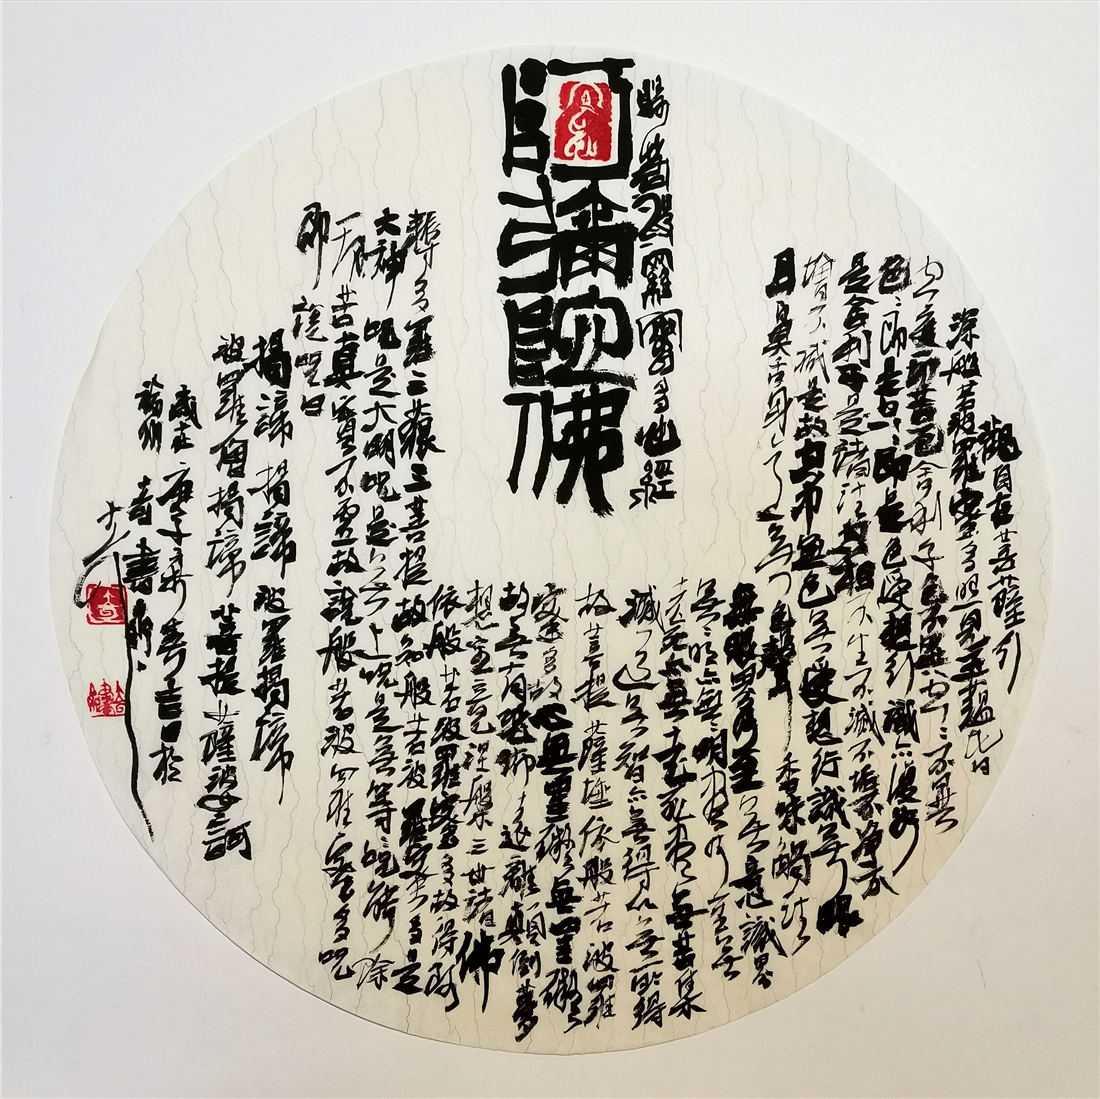 阿彌陀佛
般若波羅蜜多心經
觀自在菩薩行
深般若波羅蜜多時照見五蘊皆
空度一切苦厄舍利子色不異空空不異
色色即是空空即是色受想行識亦復如
是舍利子是諸法空相不生不滅不垢不淨不
增不減是故空中無色無受想行識無眼
耳鼻舌身意
色聲香味觸法
無眼界乃至無意識界
無無明亦無無明盡乃至無
老死亦無老死盡無苦集
滅道無智亦無得以無所得
故菩提薩埵依般若波羅
蜜多故心無罣礙無罣礙
故無有恐怖遠離顛倒夢
想究竟涅槃三世諸佛
依般若波羅蜜多故得阿
耨多羅三藐三菩提故知般若波羅蜜多是
大神咒是大明咒是無上咒是無等等咒能除
一切苦真實不虛故說般若波羅蜜多咒
即說咒曰
揭諦揭諦波羅揭諦
波羅僧揭諦菩提薩婆訶
歲在庚子年春吉日於
福州